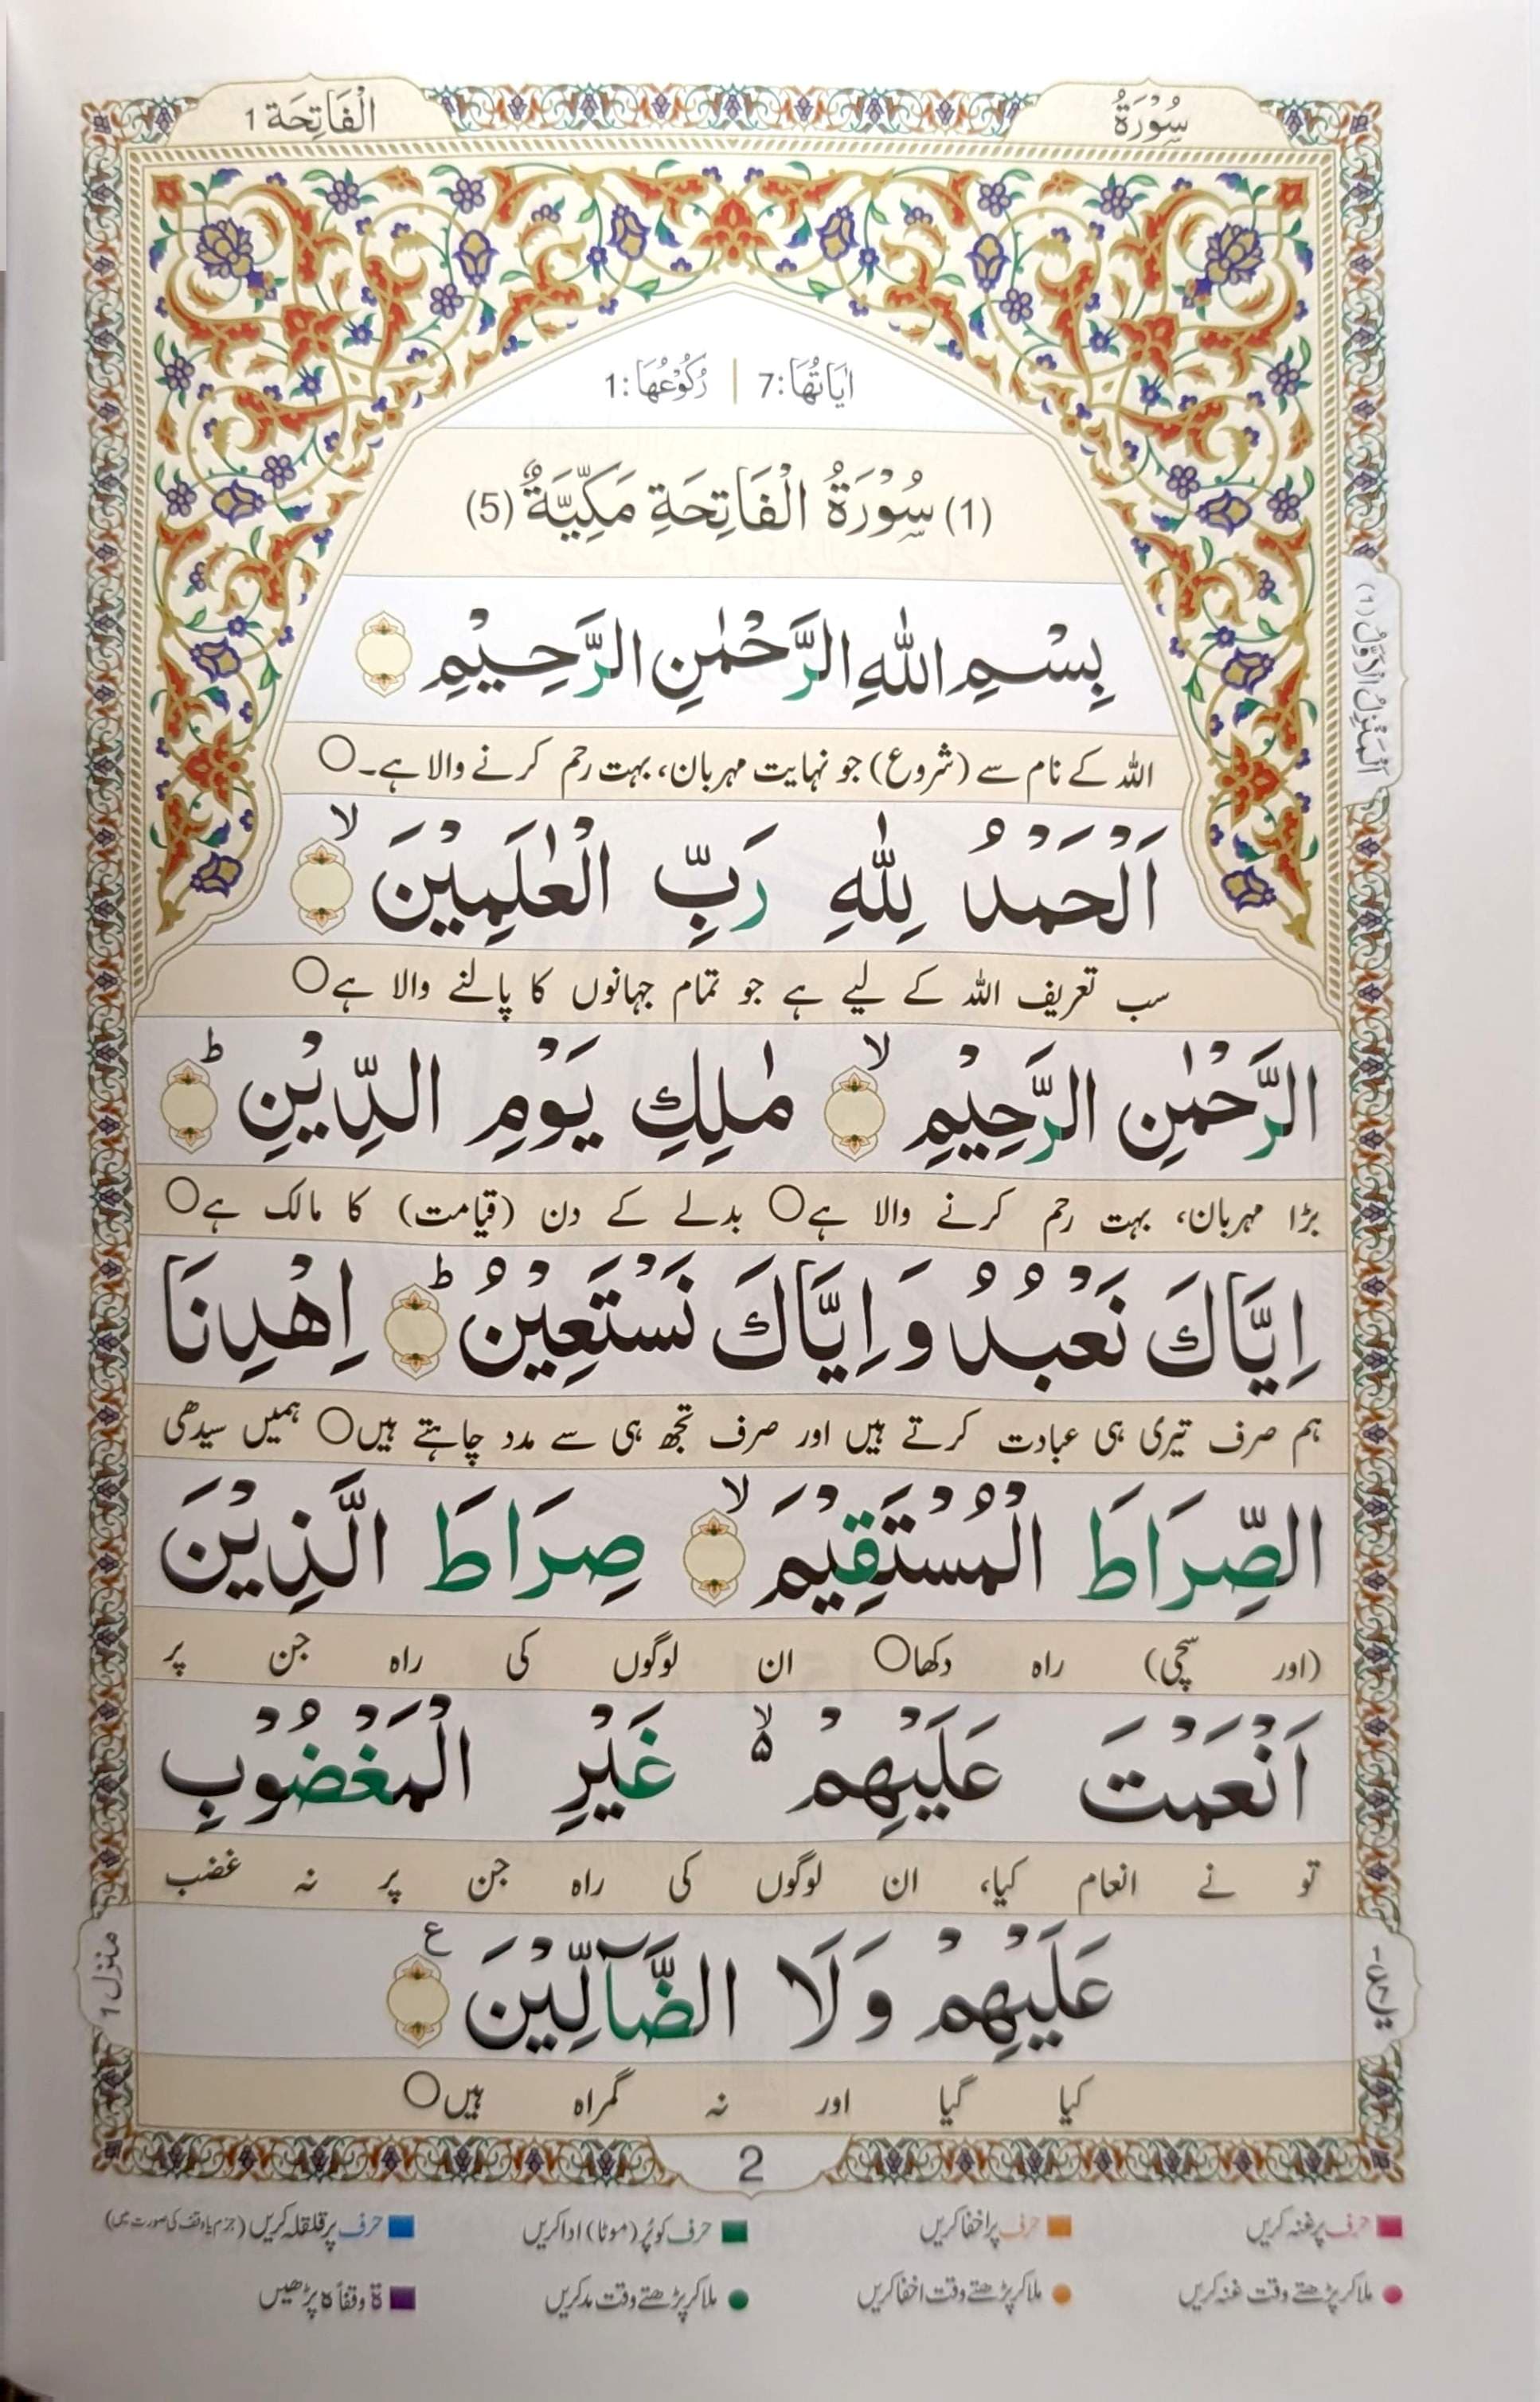 سُوْرَةُ
الْفَاتِحَة 1
اٰيَاتُهَا: 7 | رُكُوْعُهَا: 1
(1) سُوْرَةُ الْفَاتِحَةِ مَكِّيَّةٌ (5)
بِسْمِ اللّٰهِ الرَّحْمٰنِ الرَّحِيْمِ
اللہ کے نام سے (شروع) جو نہایت مہربان، بہت رحم کرنے والا ہے۔○
اَلْحَمْدُ لِلّٰهِ رَبِّ الْعٰلَمِيْنَ ۙ
سب تعریف اللہ کے لیے ہے جو تمام جہانوں کا پالنے والا ہے○
الرَّحْمٰنِ الرَّحِيْمِ ۙ مٰلِكِ يَوْمِ الدِّيْنِ ؕ
بڑا مہربان، بہت رحم کرنے والا ہے○ بدلے کے دن (قیامت) کا مالک ہے○
اِيَّاكَ نَعْبُدُ وَاِيَّاكَ نَسْتَعِيْنُ ؕ اِهْدِنَا
ہم صرف تیری ہی عبادت کرتے ہیں اور صرف تجھ ہی سے مدد چاہتے ہیں○ ہمیں سیدھی
الصِّرَاطَ الْمُسْتَقِيْمَ ۙ صِرَاطَ الَّذِيْنَ
(اور سچی) راہ دکھا○ ان لوگوں کی راہ جن پر
اَنْعَمْتَ عَلَيْهِمْ ۵ۙ غَيْرِ الْمَغْضُوْبِ
تو نے انعام کیا، ان لوگوں کی راہ جن پر نہ غضب
عَلَيْهِمْ وَلَا الضَّآلِّيْنَ ع
کیا گیا اور نہ گمراہ ہیں○
اَلْمَنْزِلُ الْاَوَّلُ (۱)
منزل 1
2
حرف پر غنہ کریں
حرف پر اخفا کریں
حرف کو پُر (موٹا) ادا کریں
حرف پر قلقلہ کریں (جزم یا وقف کی صورت میں)
ملا کر پڑھتے وقت غنہ کریں
ملا کر پڑھتے وقت اخفا کریں
ملا کر پڑھتے وقت مد کریں
ة وقفاً ہ پڑھیں